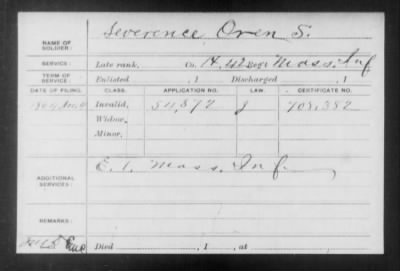 NAME OF SOLDIER: Severence, Oren S.
SERVICE: Late rank, Co. H, 42 Regt Mass. Inf
TERM OF SERVICE: Enlisted , 1 Discharged , 1
DATE OF FILING. CLASS. APPLICATION NO. LAW. CERTIFICATE NO.
Invalid, 511,872 J 708,382
Widow,
Minor,
ADDITIONAL SERVICES: E. 1. Mass. Inf.
REMARKS:
Died , 1 , at